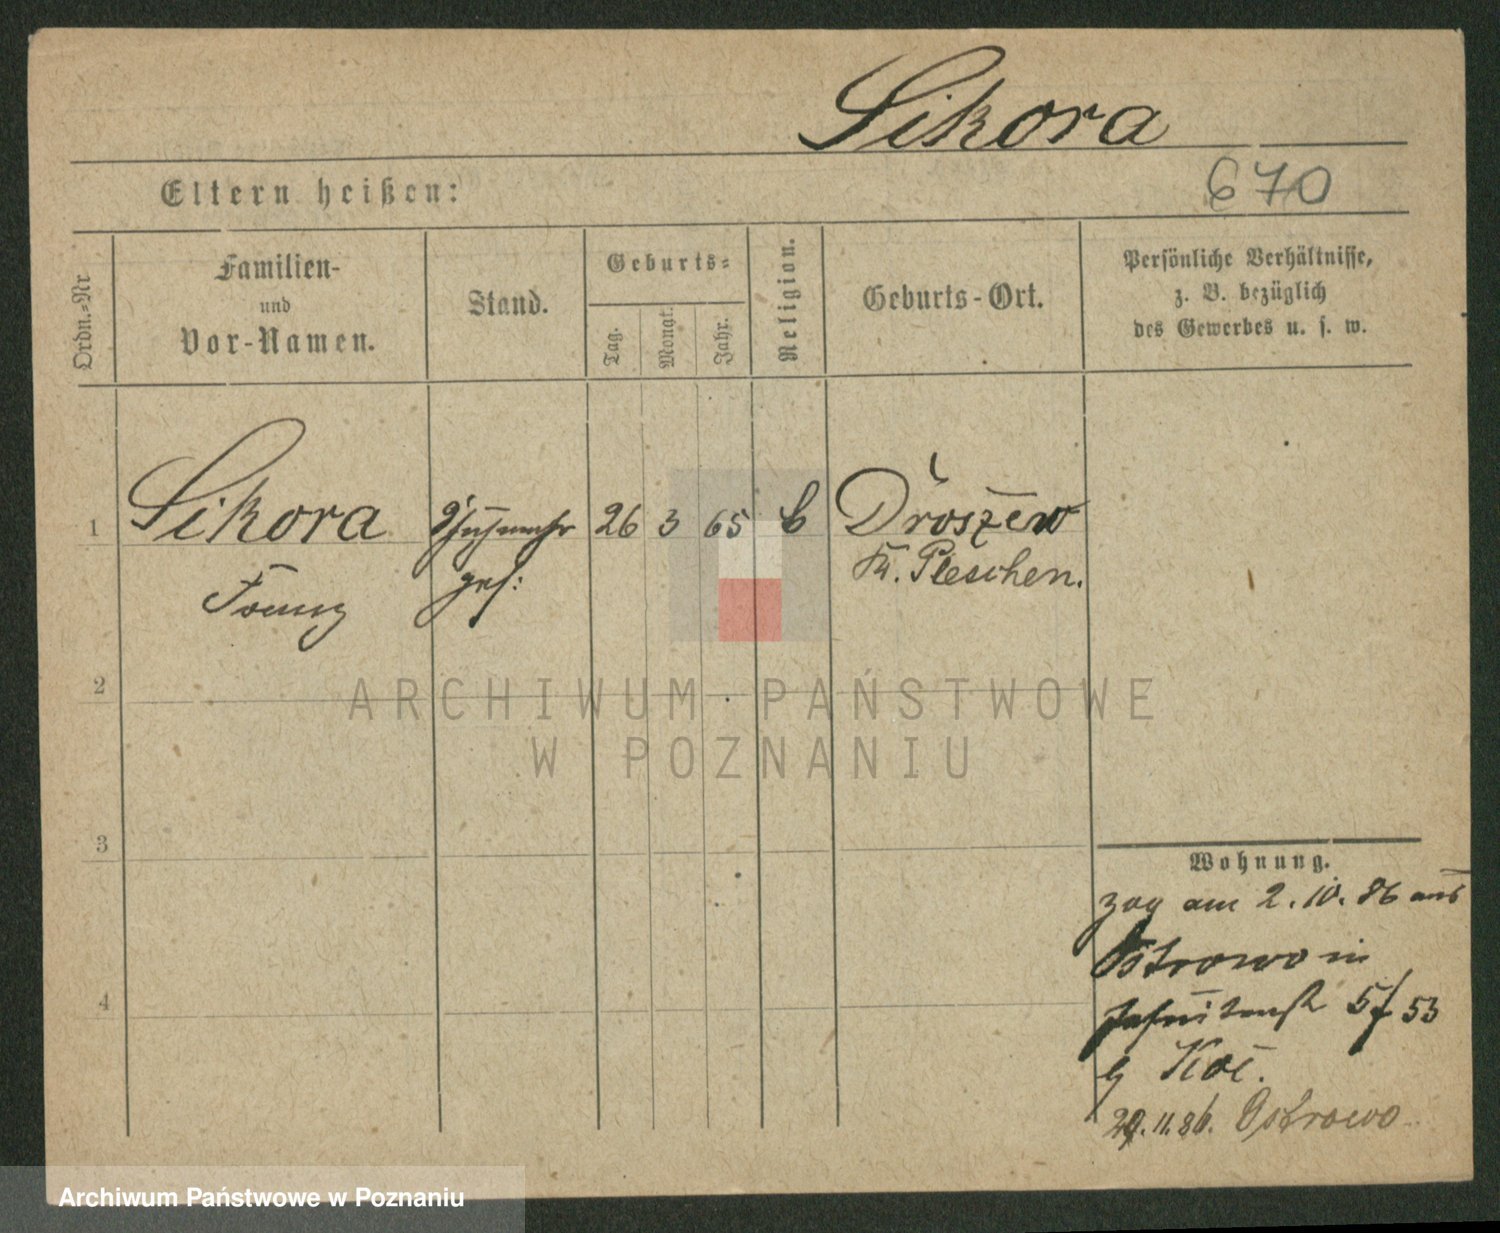 Sikora
Eltern heißen:
670
Ordn.-Nr
Familien-
und
Vor-Namen.
Stand.
Geburts=
Tag.
Monat.
Jahr.
Religion.
Geburts-Ort.
Persönliche Verhältnisse,
z. B. bezüglich
des Gewerbes u. s. w.
1 Sikora 26 3 65 Droszew
Franz ges: Kr. Pleschen.
2
ARCHIWUM PAŃSTWOWE
W POZNANIU
3
Wohnung.
zog am 2.10.86 aus
Ostrowo in
Jesuitenstr 5/53
b Koi.
4
29.11.86. Ostrowo
Archiwum Państwowe w Poznaniu